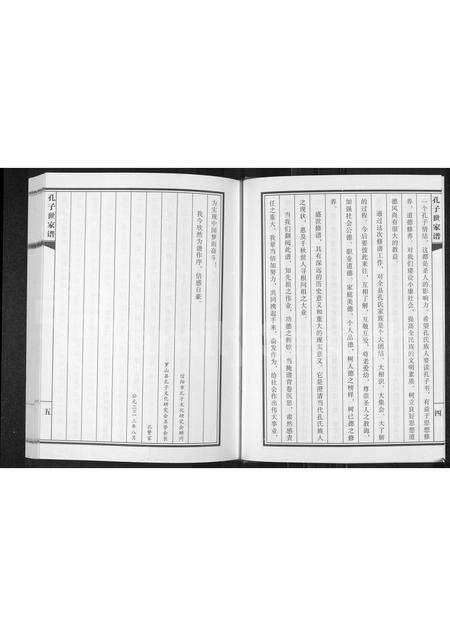 孔子世家谱
四
一个孔子情结，这都是圣人的影响力，希望孔氏族人要读孔子书，有益于思想修
养，道德修养，对我们建设小康社会，提高全民族的文明素质，树立良好思想道
德风尚有很大的教益。
通过这次修谱工作，对全县孔氏家族是个大团结，大相识，大集会，大了解
的过程，今后要彼此来往，互相了解，互敬互爱，尊老爱幼，尊崇圣人之教诲，
加强社会公德，职业道德，家庭美德，个人品德，树人德之榜样，树己德之修
养。
盛世修谱，具有深远的历史意义和重大的现实意义，它是澄清当代孔氏族人
之现状，惠及千秋世人寻根问祖之大业。
当我们翻阅此谱，知先祖之伟业，功德之辉煌，当掩谱背卷沉思，肃然感责
任之重大，我辈当倍加努力，共同携起手来，奋发作为，给社会作出伟大事业，
为实现中国梦而奋斗！
我今欣然为谱作序，倍感自豪。
信阳市孔子文化研究会顾问
罗山县孔子文化研究会名誉会长
孔繁富
公元二〇一三年八月
孔子世家谱
五